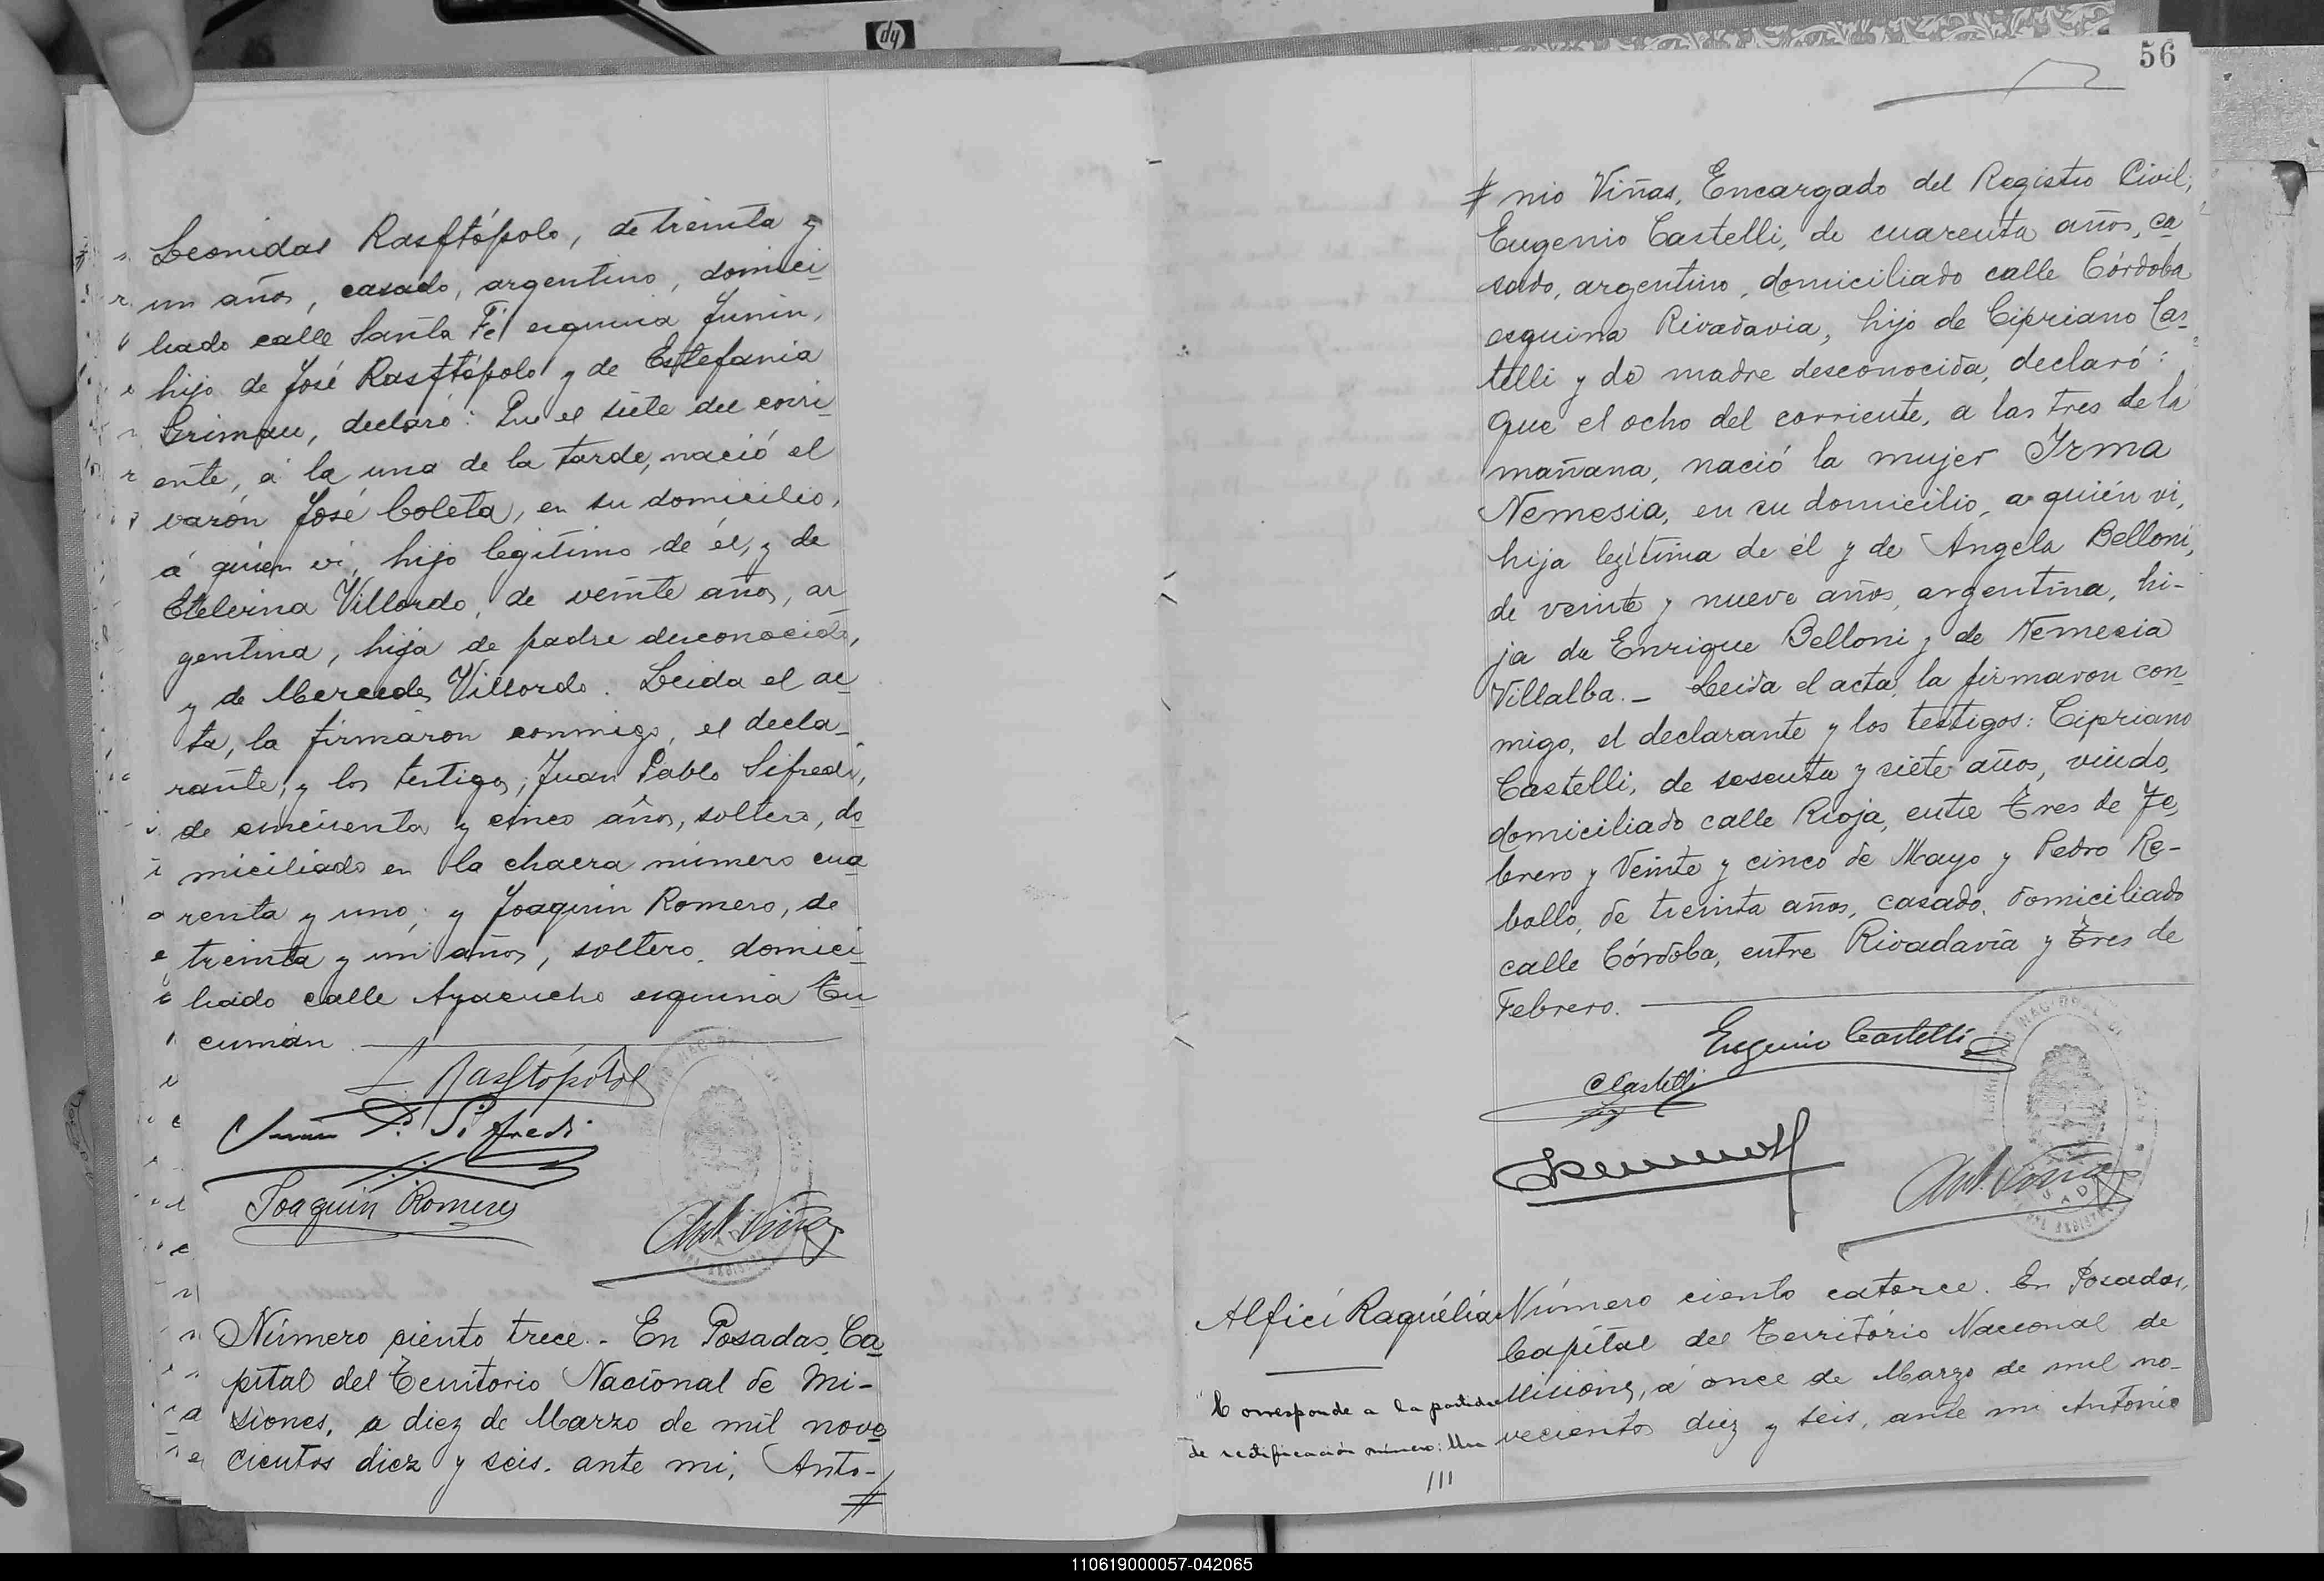 Leonidas Rasftópolo, de treinta y
un años, casado, argentino, domici
liado calle Santa Fé esquina Junín,
hijo de José Rasftópolo y de Estefania
Grimau, declaró: Que el siete del corri
ente, á la una de la tarde, nació el
varón José Coleta, en su domicilio,
á quien vi, hijo legítimo de él, y de
Etelvina Villordo, de veinte años, ar
gentina, hija de padre desconocido,
y de Mercedes Villordo. Leida el ac
ta, la firmaron conmigo, el decla-
rante, y los testigos, Juan Pablo Sifredi,
de cincuenta y cinco años, soltero, do
miciliado en la chacra número cua
renta y uno, y Joaquin Romero, de
treinta y un años, soltero, domici
liado calle Ayacucho esquina Tu
cumán
L. Rasftópolo
Juan P. Sifredi
Joaquin Romero
Ant. Viñas
Número ciento trece.- En Posadas, Ca
pital del Territorio Nacional de Mi-
siones, a diez de Marzo de mil nove
cientos diez y seis, ante mi, Anto-
#
56
# nio Viñas, Encargado del Registro Civil,
Eugenio Castelli, de cuarenta años, ca
sado, argentino, domiciliado calle Córdoba
esquina Rivadavia, hijo de Cipriano Cas-
telli y de madre desconocida, declaró:
Que el ocho del corriente, a las tres de la
mañana, nació la mujer Irma
Nemesia, en su domicilio, a quién vi,
hija legítima de él y de Angela Belloni,
de veinte y nueve años, argentina, hi-
ja de Enrique Belloni y de Nemesia
Villalba.- Leida el acta, la firmaron con
migo, el declarante y los testigos: Cipriano
Castelli, de sesenta y siete años, viudo,
domiciliado calle Rioja, entre Tres de Fe
brero y Veinte y cinco de Mayo y Pedro Re-
bollo, de treinta años, casado, domiciliado
calle Córdoba, entre Rivadavia y Tres de
Febrero.
Eugenio Castelli
C Castelli
Ant. Viñas
Alfici Raquélia
Número ciento catorce. En Posadas,
Capital del Territorio Nacional de
Misiones, á once de Marzo de mil no-
vecientos diez y seis, ante mi Antonio
Corresponde a la partida
de rectificación número: Una
111
110619000057-042065